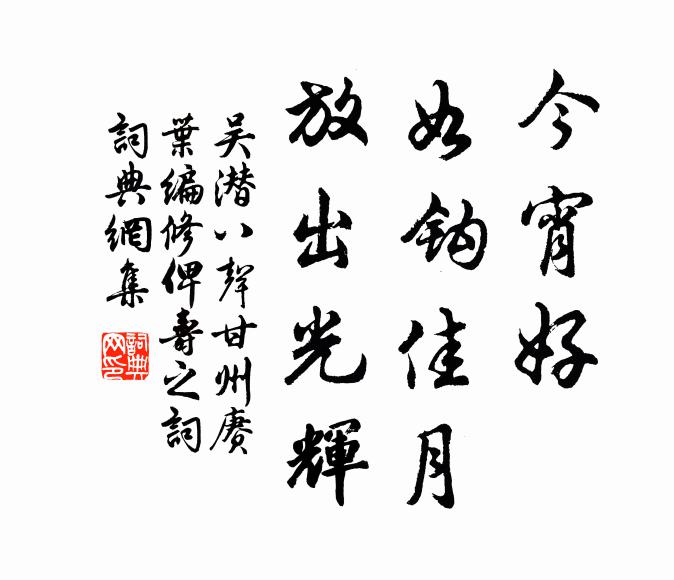 今宵好
如鈎佳月
放出光輝
吴潛八聲甘州賡
葉編修俾壽之詞
詞典網集
詞典網印